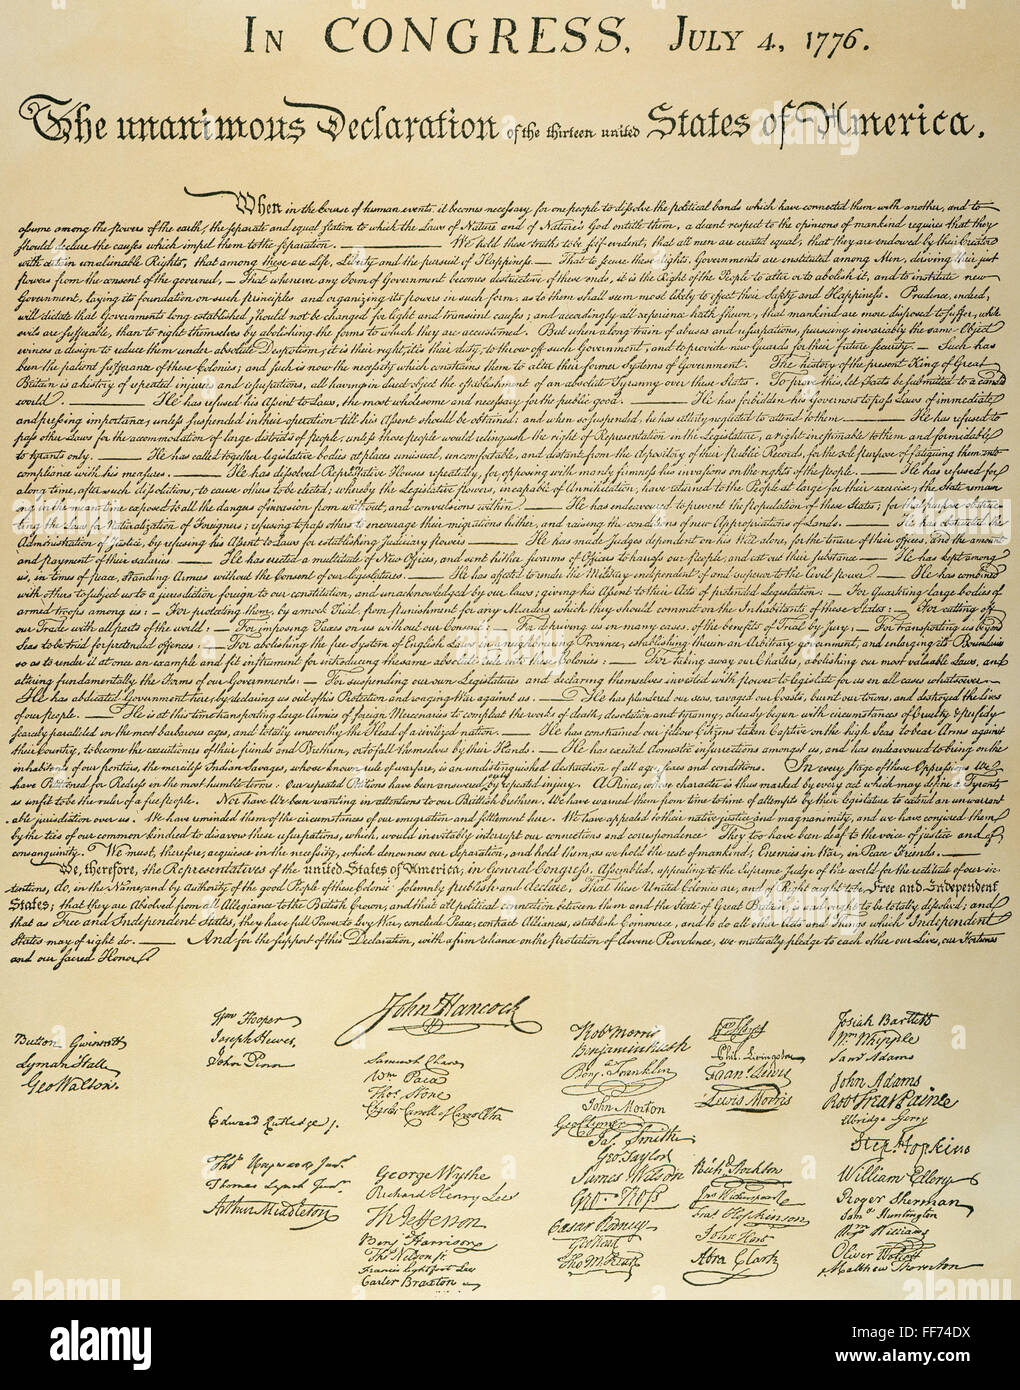 IN CONGRESS, JULY 4, 1776.
The unanimous Declaration of the thirteen united States of America.
When in the Course of human events it becomes necessary for one people to dissolve the political bands which have connected them with another, and to
assume among the powers of the earth, the separate and equal station to which the Laws of Nature and of Nature's God entitle them, a decent respect to the opinions of mankind requires that they
should declare the causes which impel them to the separation. — We hold these truths to be self-evident, that all men are created equal, that they are endowed by their Creator
with certain unalienable Rights, that among these are Life, Liberty and the pursuit of Happiness. — That to secure these rights, Governments are instituted among Men, deriving their just
powers from the consent of the governed, — That whenever any Form of Government becomes destructive of these ends, it is the Right of the People to alter or to abolish it, and to institute new
Government, laying its foundation on such principles and organizing its powers in such form, as to them shall seem most likely to effect their Safety and Happiness. Prudence, indeed,
will dictate that Governments long established should not be changed for light and transient causes; and accordingly all experience hath shewn, that mankind are more disposed to suffer, while
evils are sufferable, than to right themselves by abolishing the forms to which they are accustomed. But when a long train of abuses and usurpations, pursuing invariably the same Object
evinces a design to reduce them under absolute Despotism, it is their right, it is their duty, to throw off such Government, and to provide new Guards for their future security. — Such has
been the patient sufferance of these Colonies; and such is now the necessity which constrains them to alter their former Systems of Government. The history of the present King of Great
Britain is a history of repeated injuries and usurpations, all having in direct object the establishment of an absolute Tyranny over these States. To prove this, let Facts be submitted to a candid
world. — He has refused his Assent to Laws, the most wholesome and necessary for the public good. — He has forbidden his Governors to pass Laws of immediate
and pressing importance, unless suspended in their operation till his Assent should be obtained; and when so suspended, he has utterly neglected to attend to them. — He has refused to
pass other Laws for the accommodation of large districts of people, unless those people would relinquish the right of Representation in the Legislature, a right inestimable to them and formidable
to tyrants only. — He has called together legislative bodies at places unusual, uncomfortable, and distant from the depository of their Public Records, for the sole purpose of fatiguing them into
compliance with his measures. — He has dissolved Representative Houses repeatedly, for opposing with manly firmness his invasions on the rights of the people. — He has refused for
a long time, after such dissolutions, to cause others to be elected; whereby the Legislative powers, incapable of Annihilation, have returned to the People at large for their exercise; the State remain
ing in the mean time exposed to all the dangers of invasion from without, and convulsions within. — He has endeavoured to prevent the population of these States; for that purpose obstruc
ting the Laws for Naturalization of Foreigners; refusing to pass others to encourage their migrations hither, and raising the conditions of new Appropriations of Lands. — He has obstructed the
Administration of Justice, by refusing his Assent to Laws for establishing Judiciary powers. — He has made Judges dependent on his Will alone, for the tenure of their offices, and the amount
and payment of their salaries. — He has erected a multitude of New Offices, and sent hither swarms of Officers to harrass our People, and eat out their substance. — He has kept among
us, in times of peace, Standing Armies without the Consent of our legislatures. — He has affected to render the Military independent of and superior to the Civil power. — He has combined
with others to subject us to a jurisdiction foreign to our constitution, and unacknowledged by our laws; giving his Assent to their Acts of pretended Legislation: — For Quartering large bodies of
armed troops among us: — For protecting them, by a mock Trial, from punishment for any Murders which they should commit on the Inhabitants of these States: — For cutting off
our Trade with all parts of the world: — For imposing Taxes on us without our Consent: — For depriving us in many cases, of the benefits of Trial by Jury: — For transporting us beyond
Seas to be tried for pretended offences: — For abolishing the free System of English Laws in a neighbouring Province, establishing therein an Arbitrary government, and enlarging its Boundaries
so as to render it at once an example and fit instrument for introducing the same absolute rule into these Colonies: — For taking away our Charters, abolishing our most valuable Laws, and
altering fundamentally the Forms of our Governments: — For suspending our own Legislatures and declaring themselves invested with power to legislate for us in all cases whatsoever. —
He has abdicated Government here, by declaring us out of his Protection and waging War against us. — He has plundered our seas, ravaged our Coasts, burnt our towns, and destroyed the lives
of our people. — He is at this time transporting large Armies of foreign Mercenaries to compleat the works of death, desolation and tyranny, already begun with circumstances of Cruelty & perfidy
scarcely paralleled in the most barbarous ages, and totally unworthy the Head of a civilized nation. — He has constrained our fellow Citizens taken Captive on the high Seas to bear Arms against
their Country, to become the executioners of their friends and Brethren, or to fall themselves by their Hands. — He has excited domestic insurrections amongst us, and has endeavoured to bring on the
inhabitants of our frontiers, the merciless Indian Savages, whose known rule of warfare, is an undistinguished destruction of all ages, sexes and conditions. In every stage of these Oppressions We
have Petitioned for Redress in the most humble terms: Our repeated Petitions have been answered only by repeated injury. A Prince, whose character is thus marked by every act which may define a Tyrant,
is unfit to be the ruler of a free people. Nor have We been wanting in attentions to our Brittish brethren. We have warned them from time to time of attempts by their legislature to extend an unwarrant
able jurisdiction over us. We have reminded them of the circumstances of our emigration and settlement here. We have appealed to their native justice and magnanimity, and we have conjured them
by the ties of our common kindred to disavow these usurpations, which, would inevitably interrupt our connections and correspondence. They too have been deaf to the voice of justice and of
consanguinity. We must, therefore, acquiesce in the necessity, which denounces our Separation, and hold them, as we hold the rest of mankind, Enemies in War, in Peace Friends. —
We, therefore, the Representatives of the united States of America, in General Congress, Assembled, appealing to the Supreme Judge of the world for the rectitude of our in
tentions, do, in the Name, and by Authority of the good People of these Colonies, solemnly publish and declare, That these United Colonies are, and of Right ought to be Free and Independent
States; that they are Absolved from all Allegiance to the British Crown, and that all political connection between them and the State of Great Britain, is and ought to be totally dissolved; and
that as Free and Independent States, they have full Power to levy War, conclude Peace, contract Alliances, establish Commerce, and to do all other Acts and Things which Independent
States may of right do. — And for the support of this Declaration, with a firm reliance on the protection of divine Providence, we mutually pledge to each other our Lives, our Fortunes
and our sacred Honor.
Button Gwinnett
Lyman Hall
Geo Walton.
Wm Hooper
Joseph Hewes,
John Penn
Edward Rutledge /.
Thos Heyward Junr.
Thomas Lynch Junr.
Arthur Middleton
John Hancock
Samuel Chase
Wm Paca
Thos Stone
Charles Carroll of Carrollton
George Wythe
Richard Henry Lee
Th Jefferson
Benja Harrison
Thos Nelson jr.
Francis Lightfoot Lee
Carter Braxton
Robt Morris
Benjamin Rush
Benja Franklin
John Morton
Geo Clymer
Jas Smith
Geo. Taylor
James Wilson
Geo. Ross
Caesar Rodney
Geo Read
Tho M:Kean
Wm Floyd
Phil. Livingston
Frans. Lewis
Lewis Morris
Richd Stockton
Jno Witherspoon
Fras Hopkinson
John Hart
Abra Clark
Josiah Bartlett
Wm Whipple
Saml Adams
John Adams
Robt Treat Paine
Elbridge Gerry
Step. Hopkins
William Ellery
Roger Sherman
Saml Huntington
Wm Williams
Oliver Wolcott
Matthew Thornton
alamy
alamy
Image ID: FF74DX
www.alamy.com